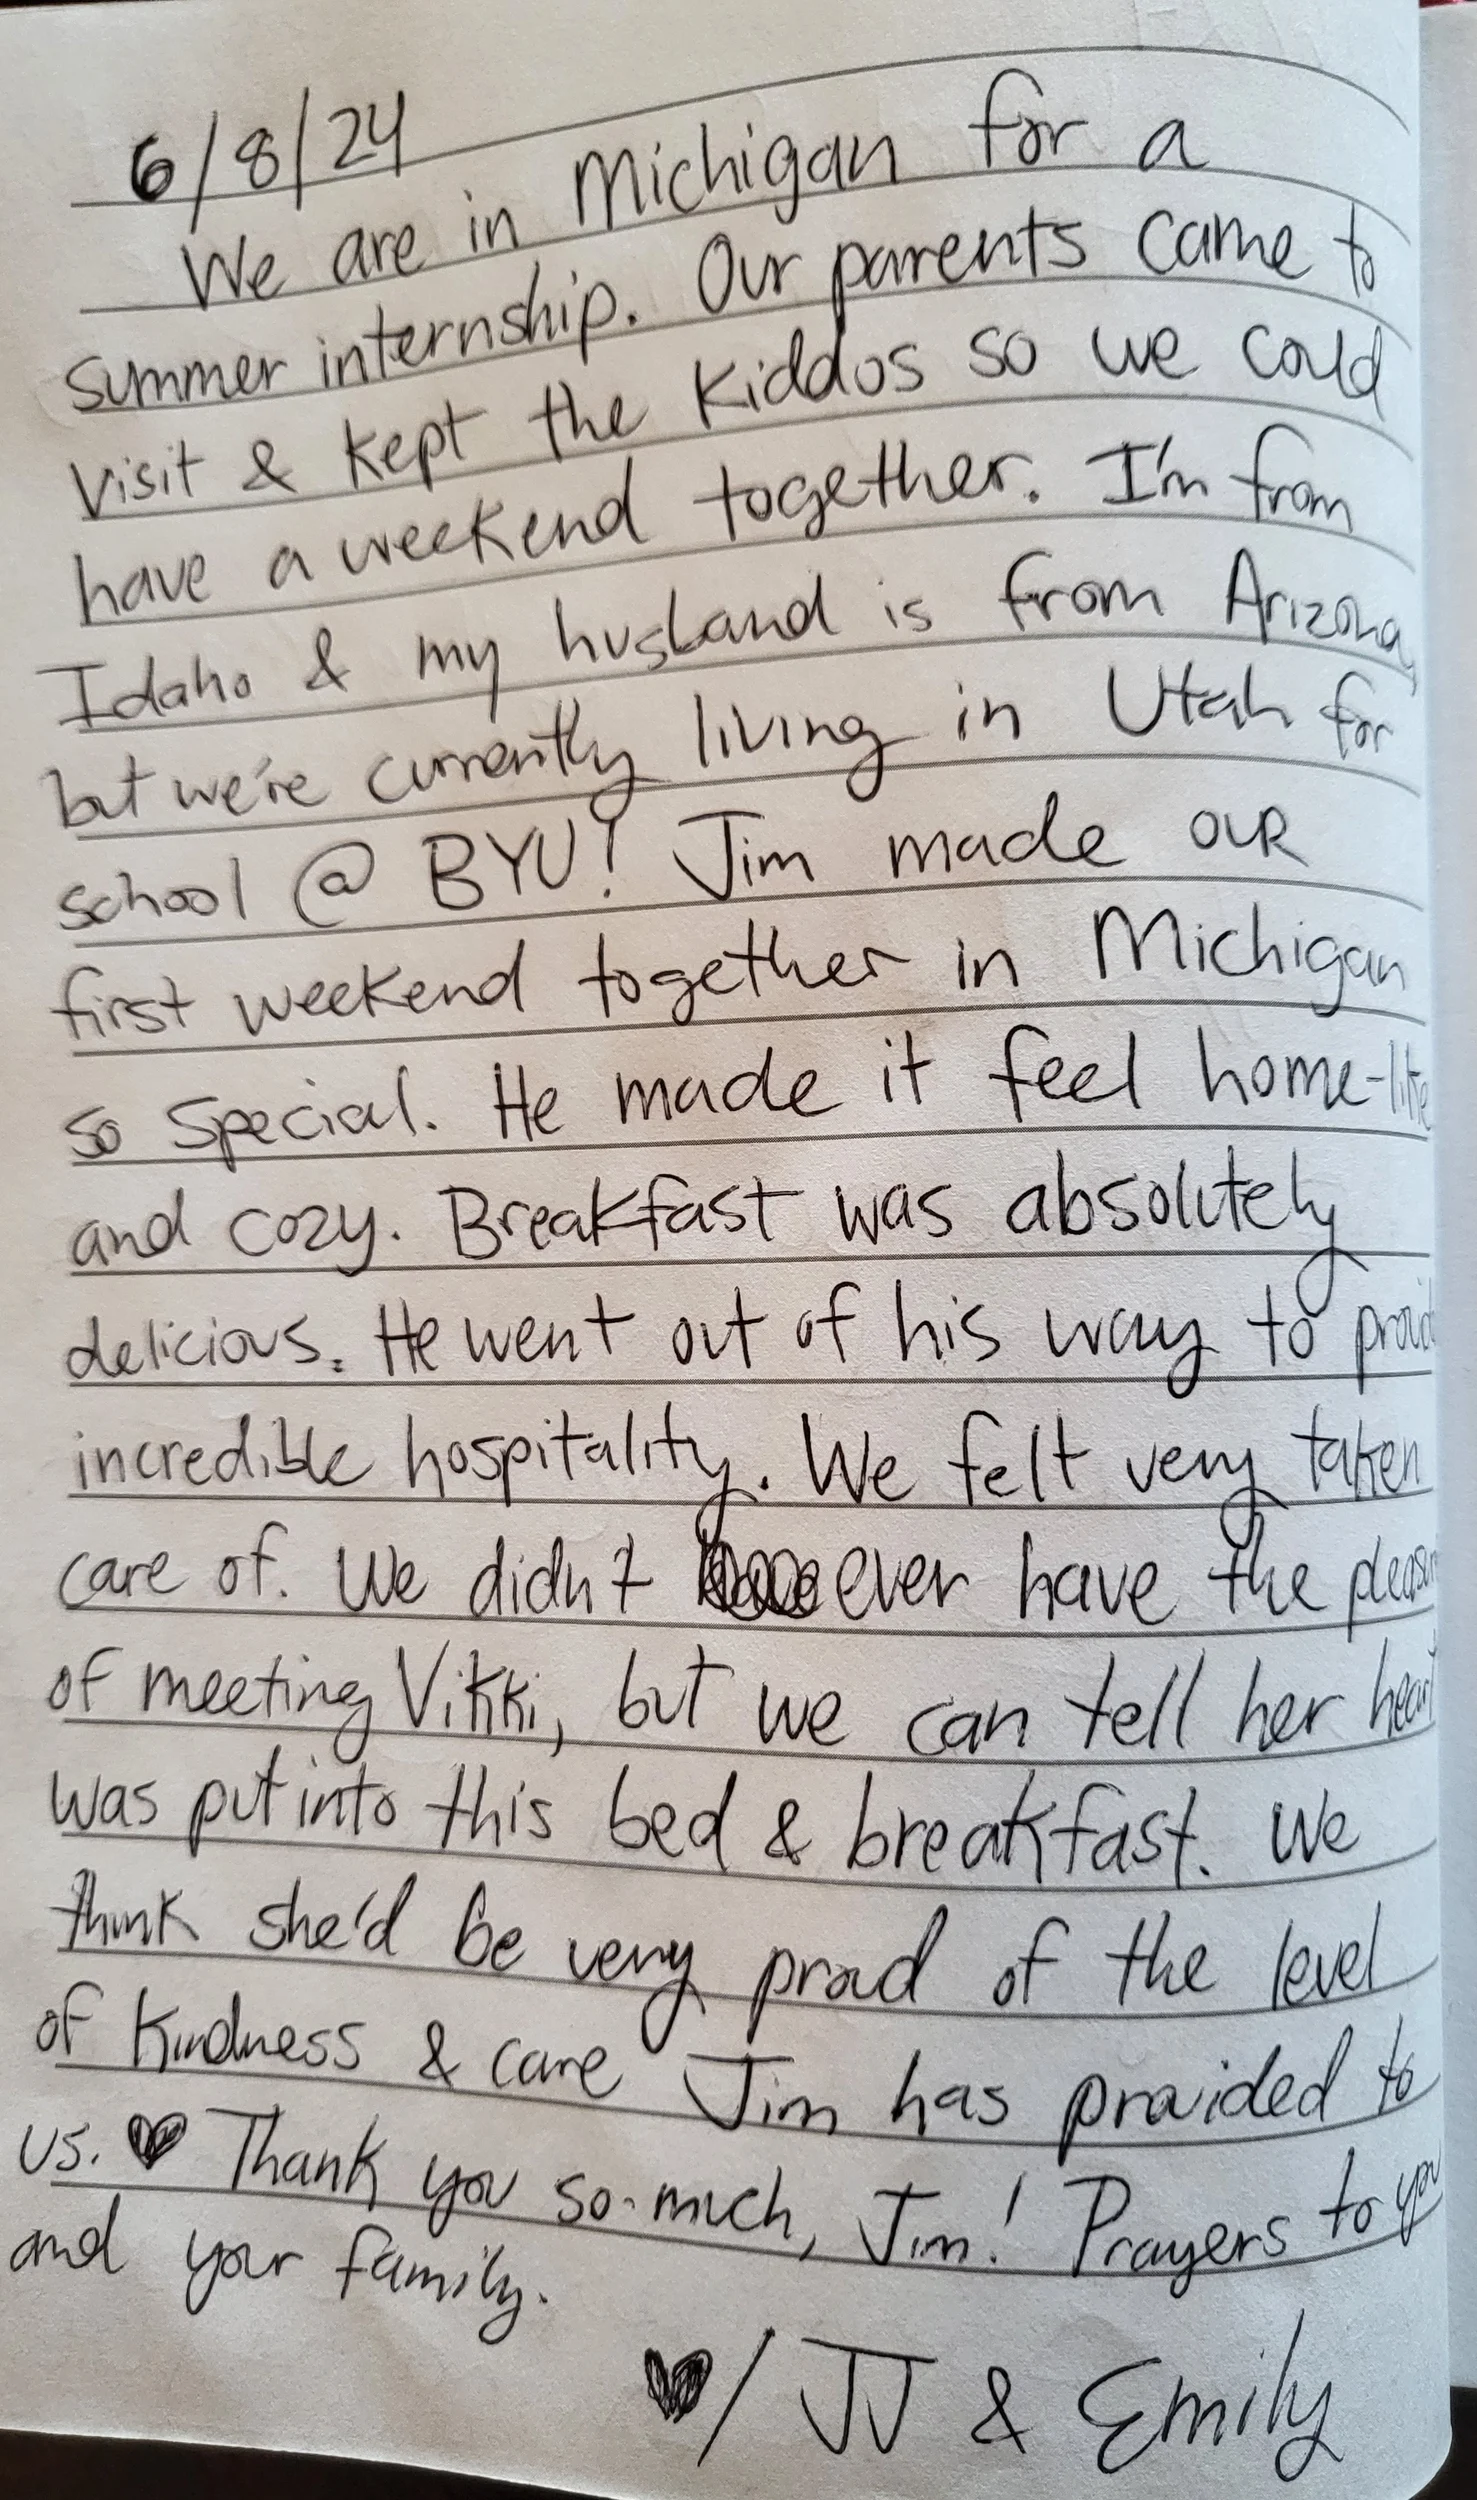 6/8/24
We are in Michigan for a
summer internship. Our parents came to
visit & kept the kiddos so we could
have a weekend together. I'm from
Idaho & my husband is from Arizona,
but we're currently living in Utah for
school @ BYU! Jim made our
first weekend together in Michigan
so special. He made it feel home-like
and cozy. Breakfast was absolutely
delicious. He went out of his way to provide
incredible hospitality. We felt very taken
care of. We didn't ever have the pleasure
of meeting Vikki, but we can tell her heart
was put into this bed & breakfast. We
think she'd be very proud of the level
of kindness & care Jim has provided to
us. ♥ Thank you so much, Jim! Prayers to you
and your family.
♥/ JJ & Emily